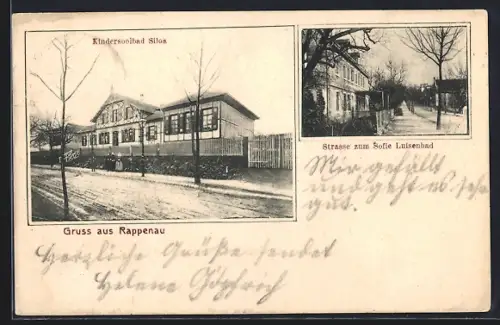 Kindersoolbad Siloa
Strasse zum Sofie Luisenbad
Mir gefällt
und geht es sehr
gut.
Gruss aus Rappenau
Herzliche Grüße sendet
Helene